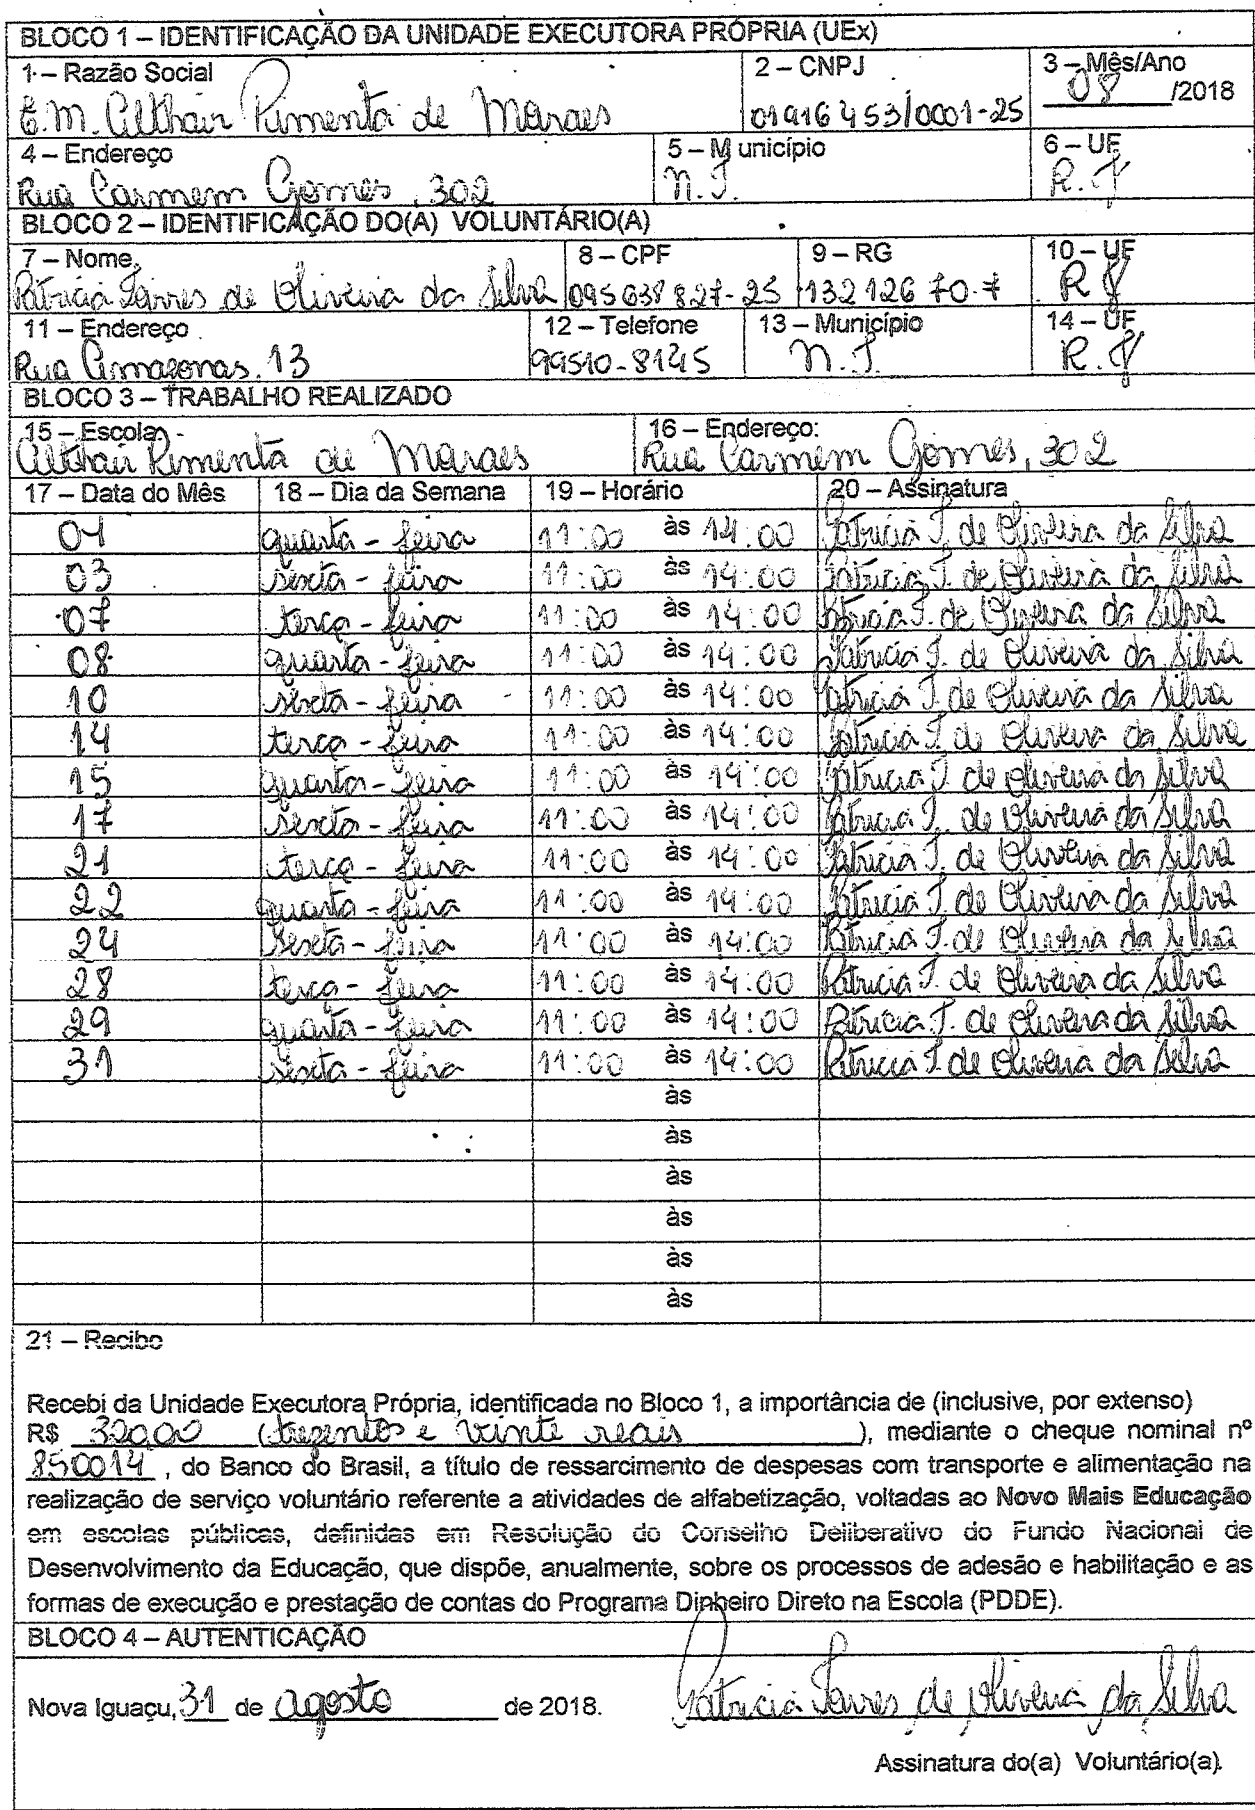 BLOCO 1 – IDENTIFICAÇÃO DA UNIDADE EXECUTORA PRÓPRIA (UEx)
1 – Razão Social 2 – CNPJ 3 – Mês/Ano
E.M. Althair Pimenta de Moraes 01916453/0001-25 08/2018
4 – Endereço 5 – Município 6 – UF
Rua Carmem Gomes, 302 N.I. R.J
BLOCO 2 – IDENTIFICAÇÃO DO(A) VOLUNTÁRIO(A)
7 – Nome 8 – CPF 9 – RG 10 – UF
Patricia Torres de Oliveira da Silva 095638827-25 13212670-7 RJ
11 – Endereço 12 – Telefone 13 – Município 14 – UF
Rua Amazonas, 13 99510-8145 N.I. R.J
BLOCO 3 – TRABALHO REALIZADO
15 – Escola 16 – Endereço:
Althair Pimenta de Moraes Rua Carmem Gomes, 302
17 – Data do Mês 18 – Dia da Semana 19 – Horário 20 – Assinatura
01 quarta-feira 11:00 às 14:00 Patricia T. de Oliveira da Silva
03 sexta-feira 11:00 às 14:00 Patricia T. de Oliveira da Silva
07 terça-feira 11:00 às 14:00 Patricia T. de Oliveira da Silva
08 quarta-feira 11:00 às 14:00 Patricia T. de Oliveira da Silva
10 sexta-feira 11:00 às 14:00 Patricia T. de Oliveira da Silva
14 terça-feira 11:00 às 14:00 Patricia T. de Oliveira da Silva
15 quarta-feira 11:00 às 14:00 Patricia T. de Oliveira da Silva
17 sexta-feira 11:00 às 14:00 Patricia T. de Oliveira da Silva
21 terça-feira 11:00 às 14:00 Patricia T. de Oliveira da Silva
22 quarta-feira 11:00 às 14:00 Patricia T. de Oliveira da Silva
24 Sexta-feira 11:00 às 14:00 Patricia T. de Oliveira da Silva
28 terça-feira 11:00 às 14:00 Patricia T. de Oliveira da Silva
29 quarta-feira 11:00 às 14:00 Patricia T. de Oliveira da Silva
31 sexta-feira 11:00 às 14:00 Patricia T. de Oliveira da Silva
às
às
às
às
às
às
21 – Recibo
Recebi da Unidade Executora Própria, identificada no Bloco 1, a importância de (inclusive, por extenso)
R$ 320,00 (trezentos e vinte reais), mediante o cheque nominal nº
850014, do Banco do Brasil, a título de ressarcimento de despesas com transporte e alimentação na
realização de serviço voluntário referente a atividades de alfabetização, voltadas ao Novo Mais Educação
em escolas públicas, definidas em Resolução do Conselho Deliberativo do Fundo Nacional de
Desenvolvimento da Educação, que dispõe, anualmente, sobre os processos de adesão e habilitação e as
formas de execução e prestação de contas do Programa Dinheiro Direto na Escola (PDDE).
BLOCO 4 – AUTENTICAÇÃO
Nova Iguaçu, 31 de agosto de 2018. Patricia Torres de Oliveira da Silva
Assinatura do(a) Voluntário(a)